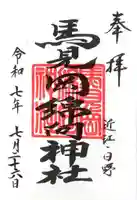 奉拝
近江・日野
馬見岡綿向神社
令和七年七月二十六日